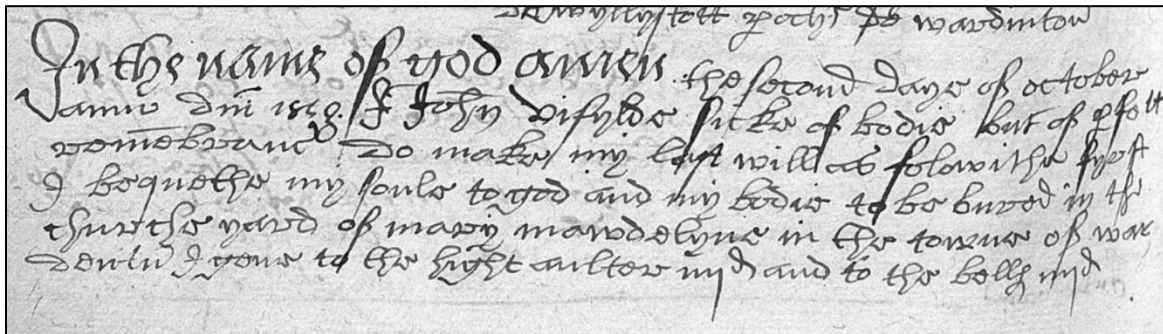 de wyllyscott poche de wardinton
In the name of god amen the second daye of october
anno dm 1558 I John Vifylde sicke of bodie but of pfett
remēbranc do make my last will as folowithe fyrst
I bequethe my soule to god and my bodie to be bured in the
churche yard of mary mawdelyne in the towne of war
dentū I geve to the hight aulter iiijd and to the bells iiijd